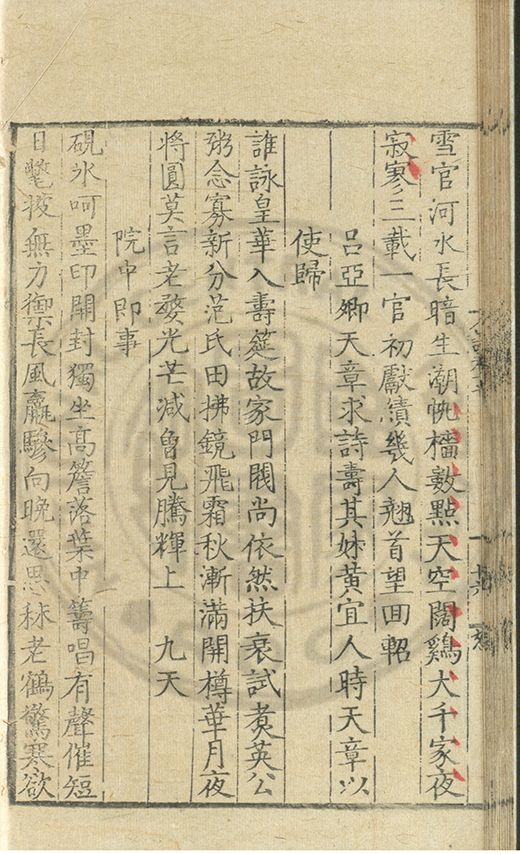 雪官河水長暗生潮帆檣數點天空闊鷄犬千家夜
寂寥三載一官初獻績幾人翹首望回軺
呂亞卿天章求詩壽其妹黃宜人時天章以
使歸
誰詠皇華入壽筵故家門閥尚依然扶衰試煑英公
粥念寡新分范氏田拂鏡飛霜秋漸滿開樽華月夜
將圓莫言老婺光芒減曾見騰輝上 九天
院中即事
硯氷呵墨印開封獨坐高簷落葉中籌唱有聲催短
日氅披無力禦長風羸驂向晚還思秣老鶴驚寒欲